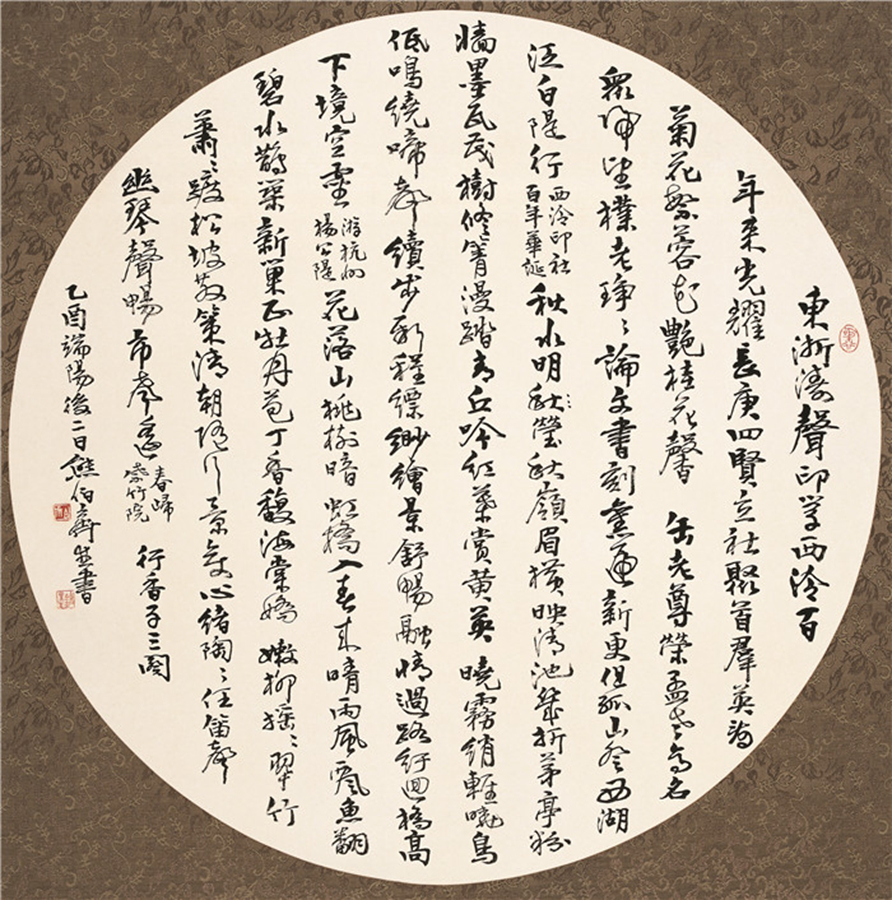 東浙濤聲印學西泠百
年來光耀長庚四賢立社聚首羣英為
菊花繁蓉花艷桂花馨 缶老尊榮孟老高名
眾師望樸老琤〻論文書刻新更但孤山冬西湖
泛白隄行 西泠印社百年華誕 秋水明秋瑩秋嶺眉橫映清池幾折茅亭粉
牆墨瓦茂樹修篁漫踏青丘吟紅葉賞黃英 曉霧綃輕曉鳥
低鳴繞啼聲續步新程縹緲繪景舒暢融情過路紆迴橋高
下境空靈 游杭州楊公隄 花落山桃樹暗虹橋入春來晴雨風飄魚翻
碧水鵲築新巢正牡丹苞丁香馥海棠嬌 嫩柳搖〻翠竹
蕭〻踱松坡散策清朝隨行景致心緒陶〻任笛聲
幽琴聲暢市聲遙 春歸紫竹院 行香子三闋
乙酉端陽後二日熊伯齊並書